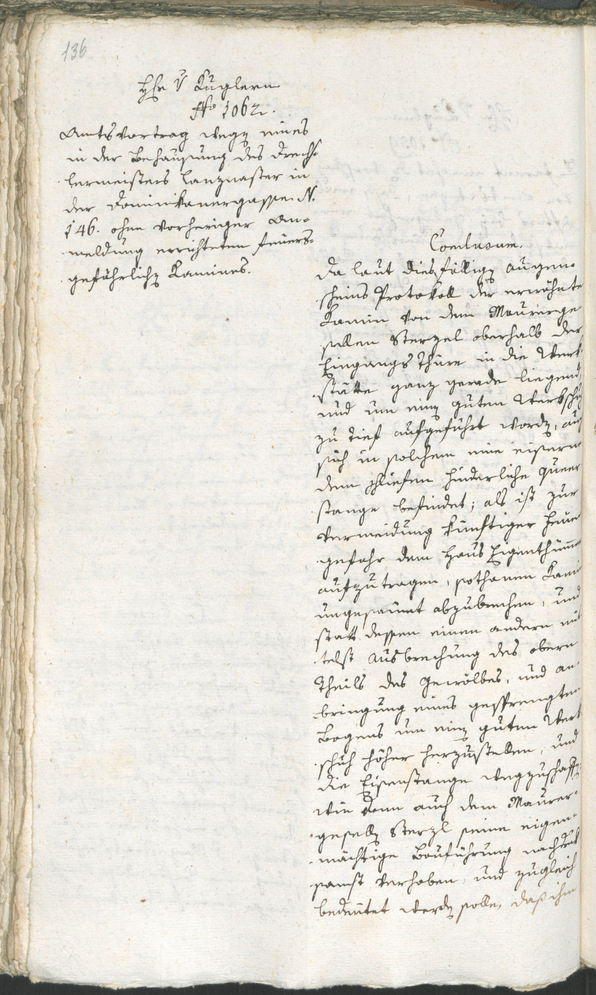 136
H͞r v Kuglern
No 1062.
Amtsvortrag wegen eines
in der Behausung des Drechs-
lermeisters Lanznaster in
der Dominikanergasse N.
146. ohne vorheriger An-
meldung errichteten feuers-
gefährlichen Kamines.
Conclusum.
Da laut diesfälligen Augen-
scheins Protokoll der erwähnte
Kamin von dem Maurerge-
sellen Sterzel oberhalb der
Eingangs Thüre in die Werk-
stätte ganz gerade liegend
und um einen guten Werkschuh
zu tief aufgeführt worden, auch
sich in solchem eine eiserne
dem schliefen hinderliche Quer-
stange befindet; als ist zur
Vermeidung künftiger Feuers-
gefahr dem Haus Eigenthümer
aufzutragen, sothanen Kamin
ungesäumt abzubrechen, und
statt dessen einen andern mit-
telst Ausbrechung des obern
Theils des Gewölbes, und an-
bringung eines gesprengten
Bogens um einen guten Werk-
schuh höher herzustellen, und
die Eisenstange wegzuschaffen,
wie denn auch dem Maurer-
gesellen Sterzl seine eigen-
mächtige Bauführung nachdruk-
samst verhoben, und zugleich
bedeutet werden solle, daß ihm